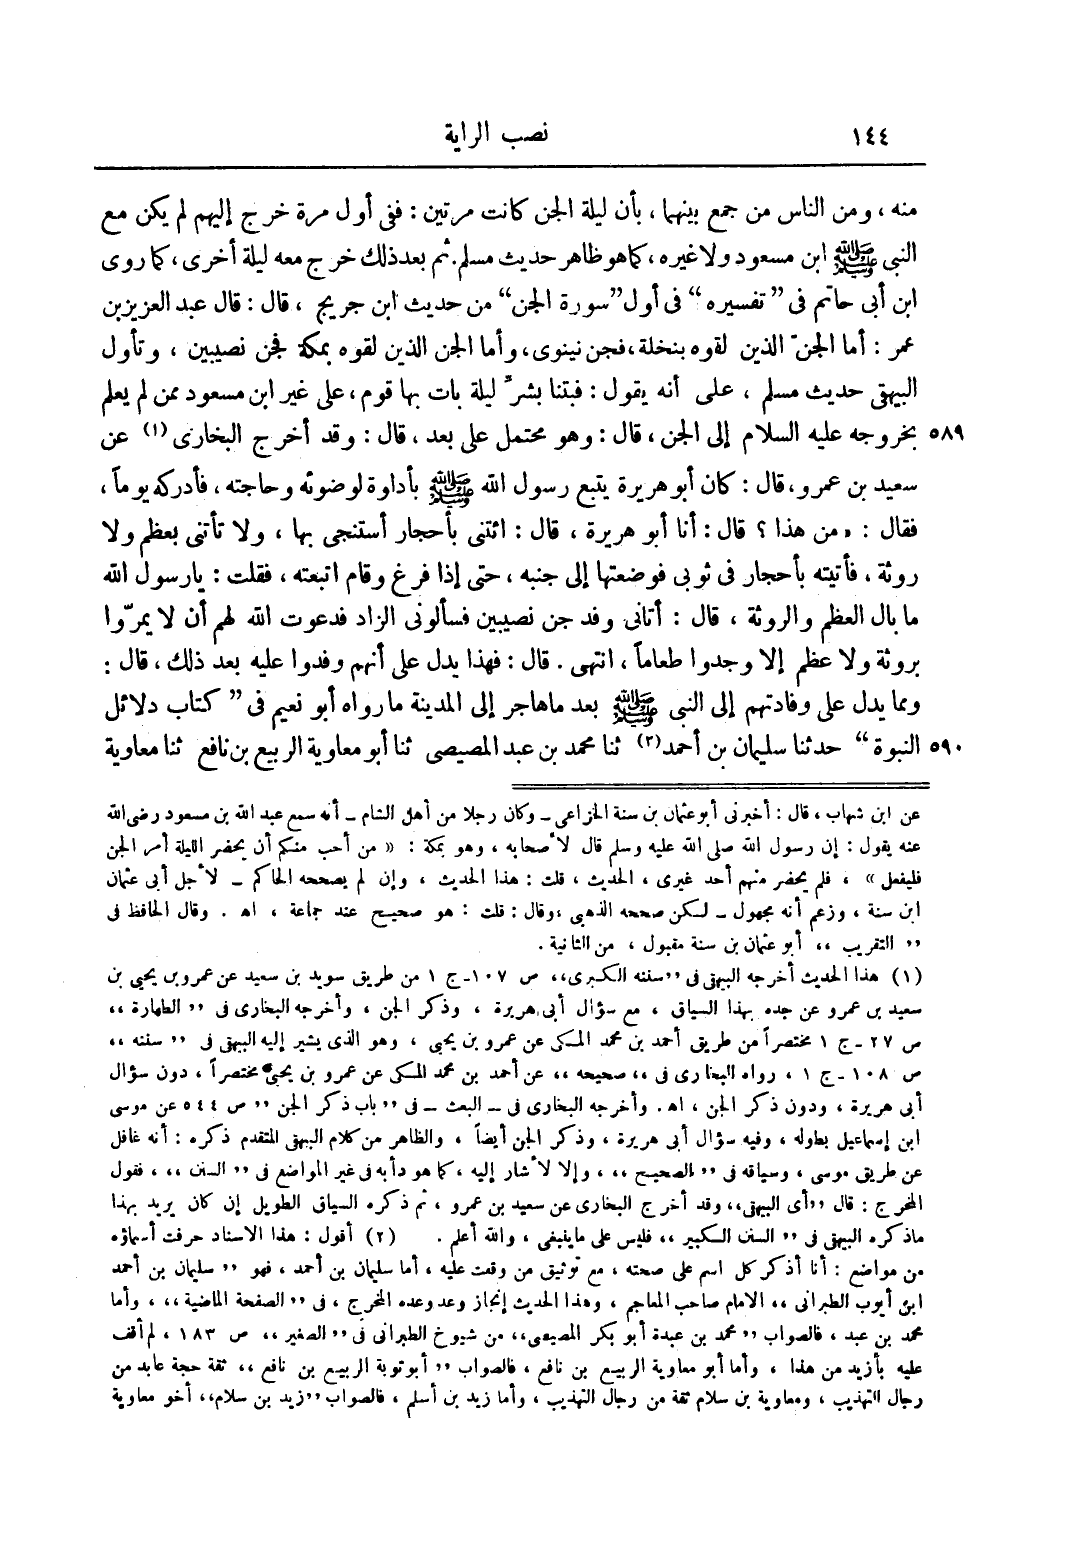 ١٤٤ نصب الراية
منه ، ومن الناس من جمع بينهما ، بأن ليلة الجن كانت مرتين : ففى أول مرة خرج إليهم لم يكن مع
النبى ﷺ ابن مسعود ولا غيره ، كما هو ظاهر حديث مسلم . ثم بعد ذلك خرج معه ليلة أخرى ، كما روى
ابن أبى حاتم فى " تفسيره " فى أول "سورة الجن" من حديث ابن جريج ، قال : قال عبد العزيز بن
عمر : أما الجنّ الذين لقوه بنخلة ، فجن نينوى ، وأما الجن الذين لقوه بمكة فجن نصيبين ، وتأول
البيهقى حديث مسلم ، على أنه يقول : فبتنا بشرّ ليلة بات بها قوم ، على غير ابن مسعود ممن لم يعلم
٥٨٩ بخروجه عليه السلام إلى الجن ، قال : وهو محتمل على بعد ، قال : وقد أخرج البخارى (١) عن
سعيد بن عمرو ، قال : كان أبو هريرة يتبع رسول الله ﷺ بأداوة لوضوئه وحاجته ، فأدركه يوماً ،
فقال : « من هذا ؟ قال : أنا أبو هريرة ، قال : ائتنى بأحجار أستنجى بها ، ولا تأتنى بعظم ولا
روثة ، فأتيته بأحجار فى ثوبى فوضعتها إلى جنبه ، حتى إذا فرغ وقام اتبعته ، فقلت : يارسول الله
ما بال العظم والروثة ، قال : أتانى وفد جن نصيبين فسألونى الزاد فدعوت الله لهم أن لا يمرّوا
بروثة ولا عظم إلا وجدوا طعاماً ، انتهى . قال : فهذا يدل على أنهم وفدوا عليه بعد ذلك ، قال :
ومما يدل على وفادتهم إلى النبى ﷺ بعد ماهاجر إلى المدينة ما رواه أبو نعيم فى " كتاب دلائل
٥٩٠ النبوة " حدثنا سليمان بن أحمد (٢) ثنا محمد بن عبد المصيصى ثنا أبو معاوية الربيع بن نافع ثنا معاوية
عن ابن شهاب ، قال : أخبرنى أبو عثمان بن سنة الخزاعى ـ وكان رجلا من أهل الشام ـ أنه سمع عبد الله بن مسعود رضى الله
عنه يقول : إن رسول الله صلى الله عليه وسلم قال لأصحابه ، وهو بمكة : « من أحب منكم أن يحضر الليلة أمر الجن
فليفعل » ، فلم يحضر منهم أحد غيرى ، الحديث ، قلت : هذا الحديث ، وإن لم يصححه الحاكم ـ لأجل أبى عثمان
ابن سنة ، وزعم أنه مجهول ـ لكن صححه الذهبى ، وقال : قلت : هو صحيح عند جماعة ، اه . وقال الحافظ فى
" التقريب ،، أبو عثمان بن سنة مقبول ، من الثانية .
(١) هذا الحديث أخرجه البيهقى فى "سننه الكبرى،، ص ١٠٧ ـ ج ١ من طريق سويد بن سعيد عن عمرو بن يحيى بن
سعيد بن عمرو عن جده بهذا السياق ، مع سؤال أبى هريرة ، وذكر الجن ، وأخرجه البخارى فى " الطهارة ،،
ص ٢٧ ـ ج ١ مختصراً من طريق أحمد بن محمد المكى عن عمرو بن يحيى ، وهو الذى يشير إليه البيهقى فى " سننه ،،
ص ١٠٨ ـ ج ١ ، رواه البخارى فى ،، صحيحه ،، عن أحمد بن محمد المكى عن عمرو بن يحيى مختصراً ، دون سؤال
أبى هريرة ، ودون ذكر الجن ، اه . وأخرجه البخارى فى ـ البعث ـ فى " باب ذكر الجن " ص ٥٤٤ عن موسى
ابن إسماعيل بطوله ، وفيه سؤال أبى هريرة ، وذكر الجن أيضاً ، والظاهر من كلام البيهقى المتقدم ذكره : أنه غافل
عن طريق موسى ، وسياقه فى " الصحيح ،، ، وإلا لأشار إليه ، كما هو دأبه فى غير المواضع فى " السنن ،، ، فقول
المخرج : قال "أى البيهقى،، وقد أخرج البخارى عن سعيد بن عمرو ، ثم ذكره السياق الطويل إن كان يريد بهذا
ماذكره البيهقى فى " السنن الكبير ،، فليس على ماينبغى ، والله أعلم . (٢) أقول : هذا الاسناد حرفت أسماؤه
من مواضع : أنا أذكر كل اسم على صحته ، مع توثيق من وقعت عليه ، أما سليمان بن أحمد ، فهو " سليمان بن أحمد
ابن أيوب الطبرانى ،، الامام صاحب المعاجم ، وهذا الحديث إنجاز وعد وعده المخرج ، فى " الصفحة الماضية ،، ، وأما
محمد بن عبد ، فالصواب " محمد بن عبدة أبو بكر المصيصى،، من شيوخ الطبرانى فى " الصغير ،، ص ١٨٣ ، لم أقف
عليه بأزيد من هذا ، وأما أبو معاوية الربيع بن نافع ، فالصواب " أبو توبة الربيع بن نافع ،، ثقة حجة عابد من
رجال التهذيب ، ومعاوية بن سلام ثقة من رجال التهذيب ، وأما زيد بن أسلم ، فالصواب "زيد بن سلام،، أخو معاوية